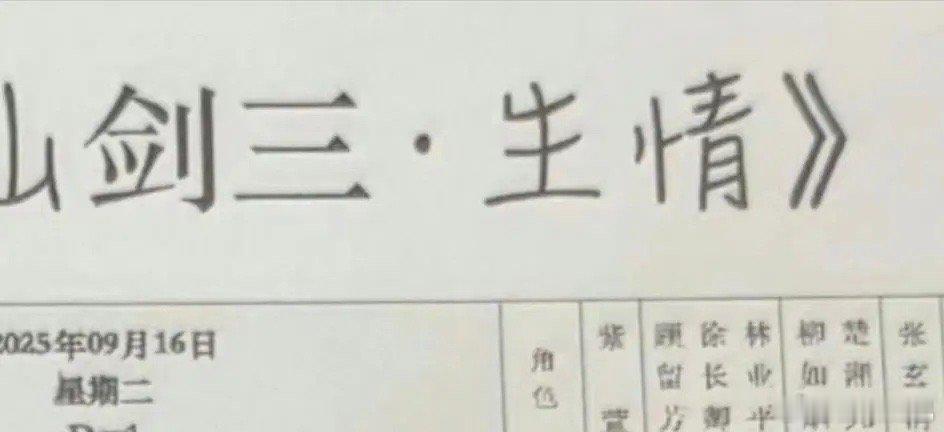 剑三·生情》
2025年09月16日
星期二
角色
紫萱
顾留芳
徐长卿
林业平
柳如
楚湘
张玄